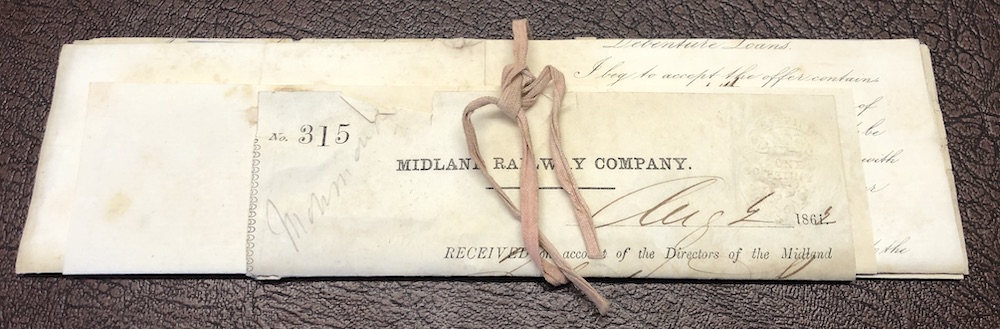 Debenture Loans.
I beg to accept the offer contain
of
be
with
the
No. 315
MIDLAN RAILWAY COMPANY.
Aug 186
RECEIVED on account of the Directors of the Midland